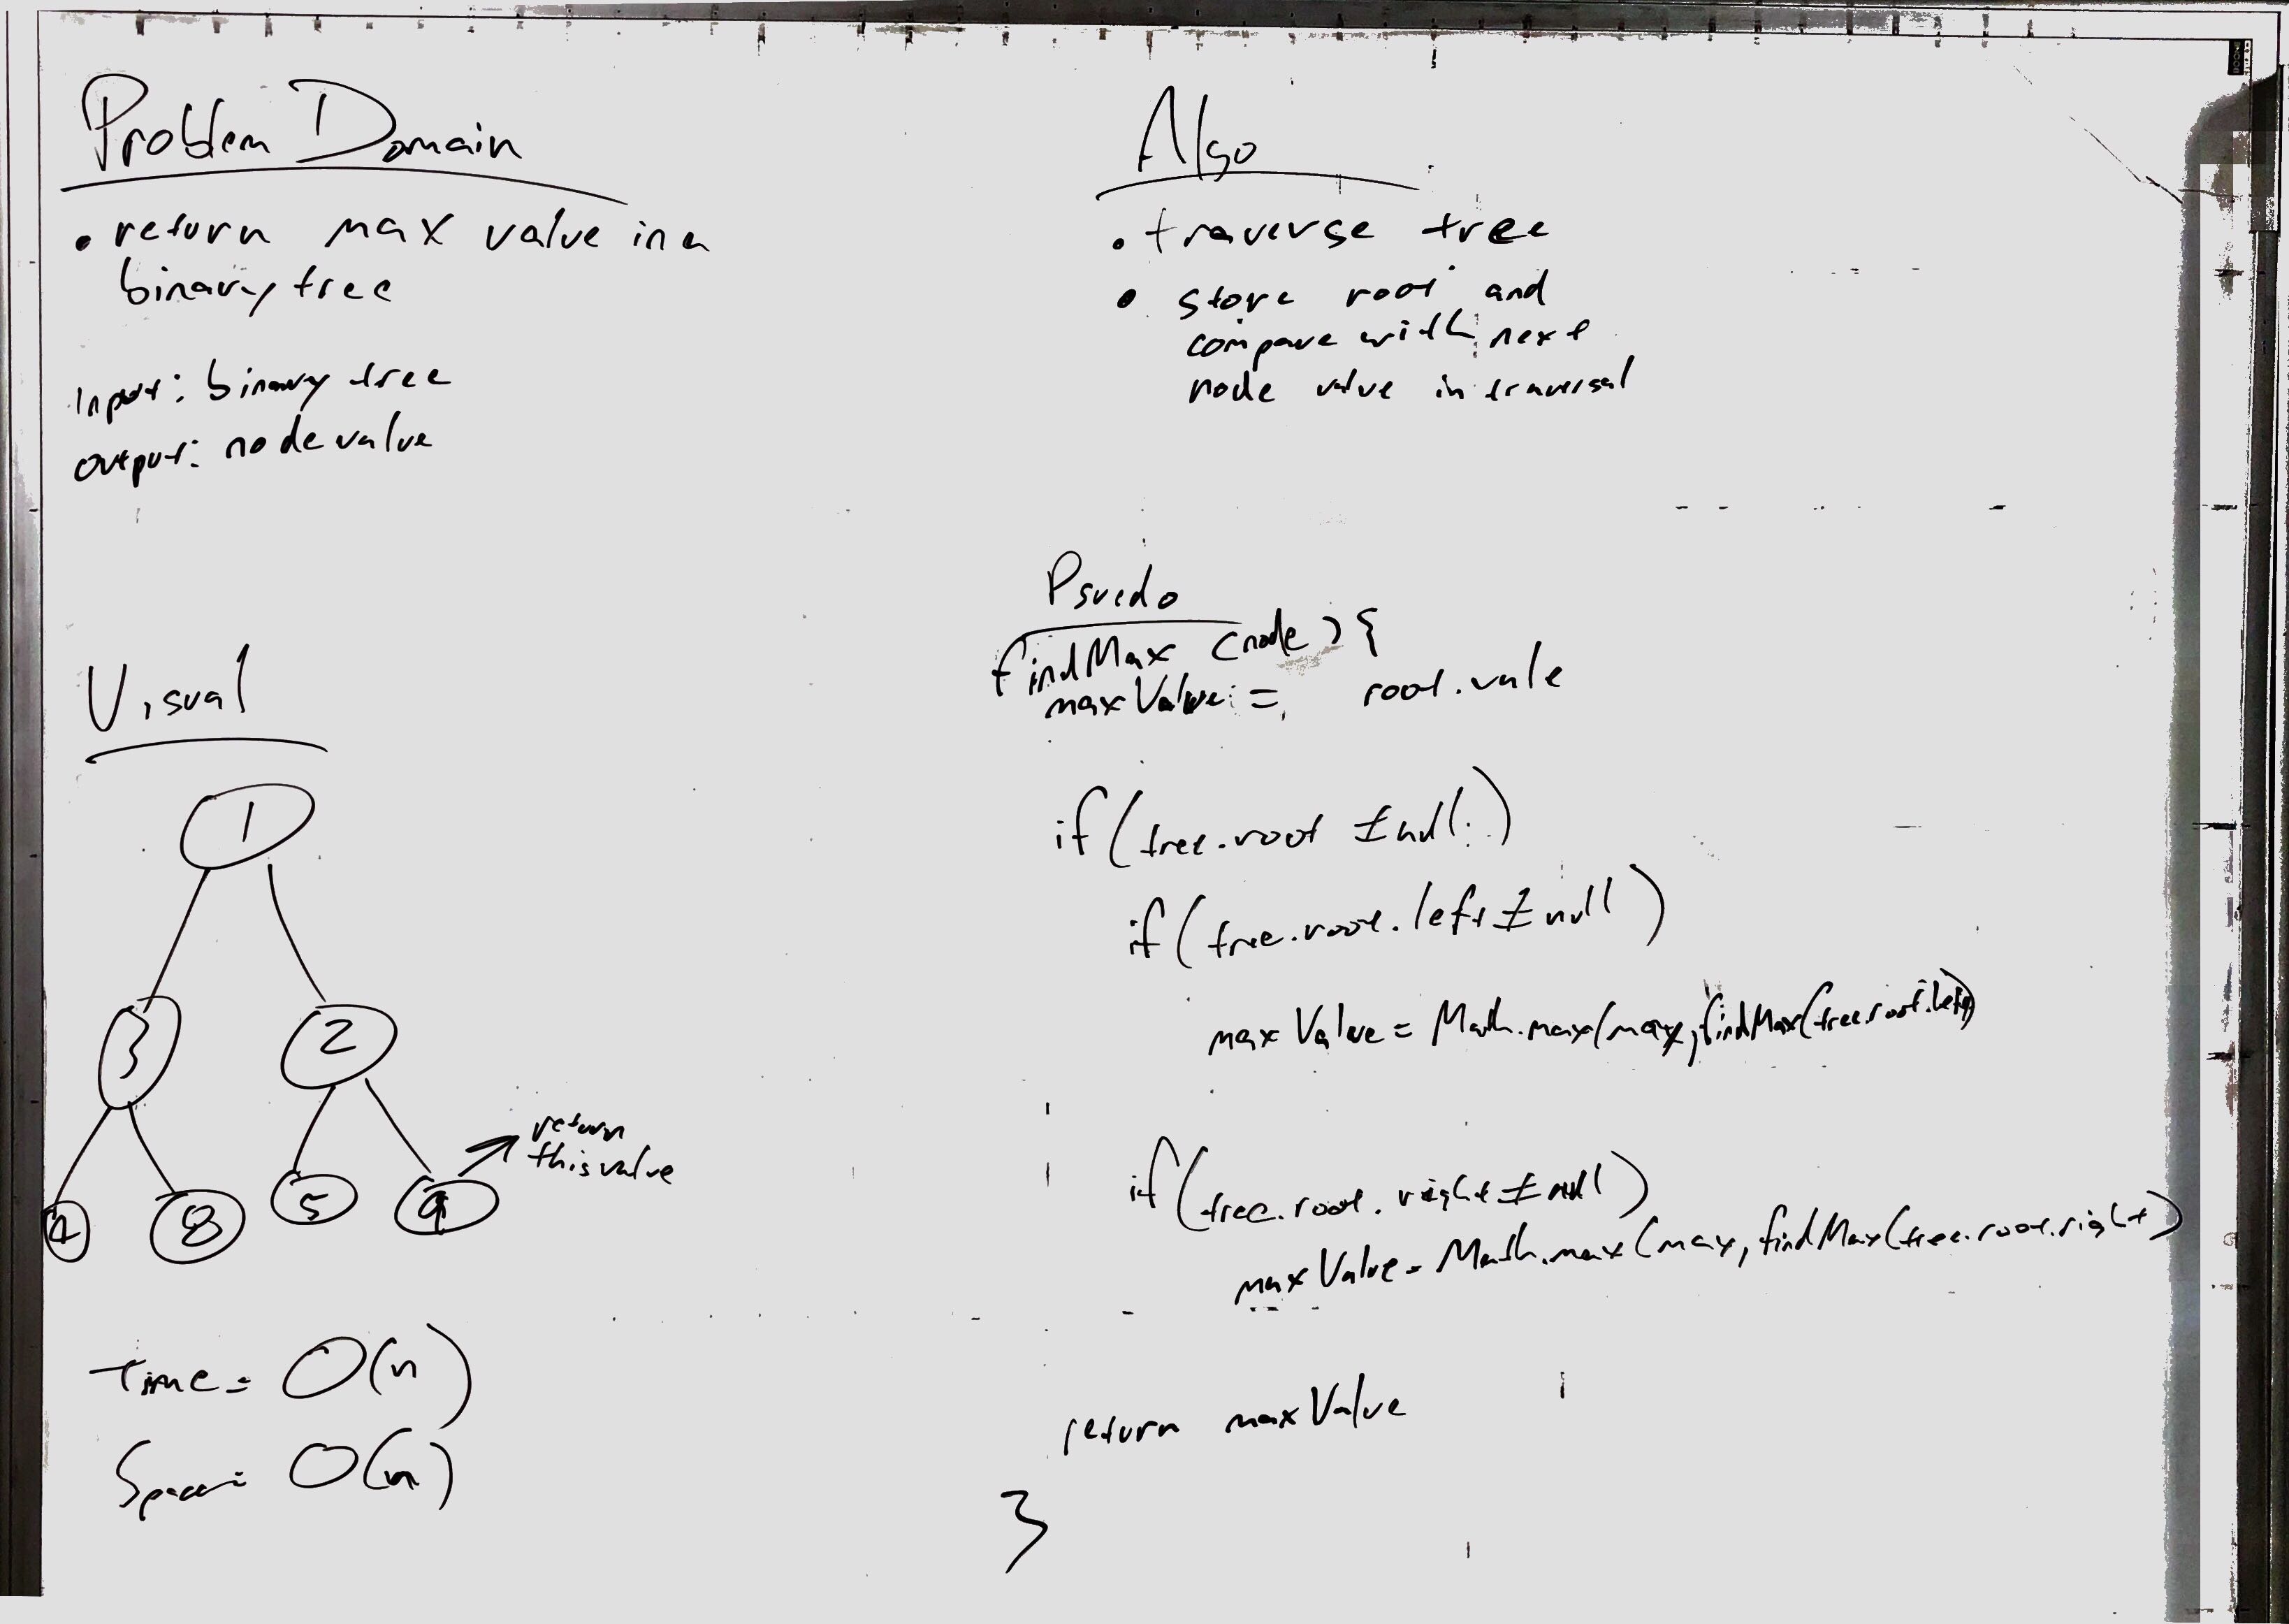 Problem Domain
• return max value in a
binary tree
Input: binary tree
output: node value
Visual
1
3
2
4
8
5
9
return
this value
Time = O(n)
Space = O(n)
Algo
• traverse tree
• store root and
compare with next
node value in traversal
Psuedo
findMax (node) {
maxValue = root.vale
if (tree.root ≠ null)
if (tree.root.left ≠ null)
maxValue = Math.max(max, findMax(tree.root.left)
if (tree.root.right ≠ null)
maxValue = Math.max(max, findMax(tree.root.right)
return maxValue
}